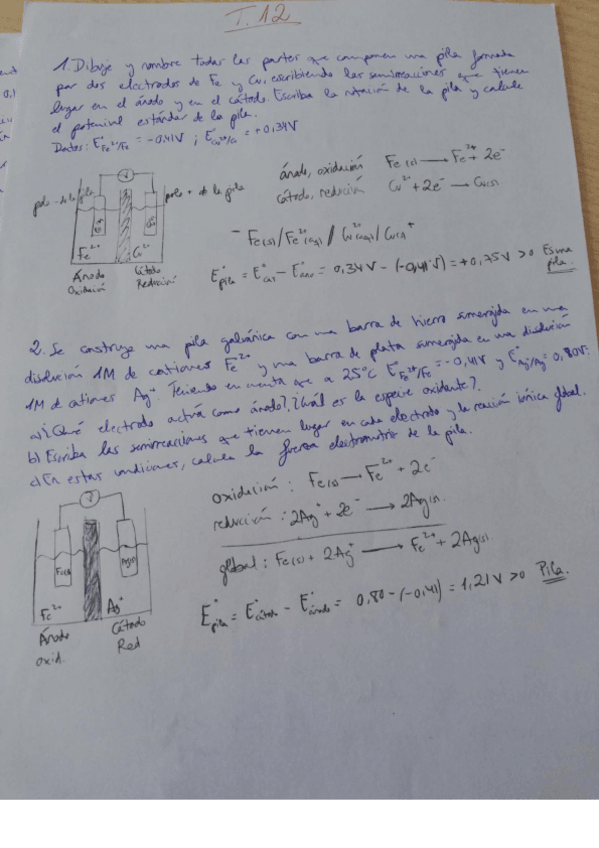 T.12
1. Dibuje y nombre todas las partes que componen una pila formada
por dos electrodos de Fe y Cu, escribiendo las semirreacciones que tienen
lugar en el ánodo y en el cátodo. Escriba la notación de la pila y calcule
el potencial estándar de la pila.
Datos: E°Fe²⁺/Fe = -0,41V ; E°Cu²⁺/Cu = +0,34V
ánodo, oxidación Fe(s) → Fe²⁺ + 2e⁻
cátodo, reducción Cu²⁺ + 2e⁻ → Cu(s)
polo - de la pila
V
polo + de la pila
Fe²⁺
Cu²⁺
Ánodo
Oxidación
Cátodo
Reducción
- Fe(s)/Fe²⁺(aq) // Cu²⁺(aq)/Cu(s) +
E°pila = E°cat - E°ano = 0,34V - (-0,41V) = +0,75V > 0 Es una
pila.
2. Se construye una pila galvánica con una barra de hierro sumergida en una
disolución 1M de cationes Fe²⁺ y una barra de plata sumergida en una disolución
1M de cationes Ag⁺. Teniendo en cuenta que a 25°C E°Fe²⁺/Fe = -0,41V y E°Ag⁺/Ag = 0,80V:
a) ¿Qué electrodo actúa como ánodo? ¿Cuál es la especie oxidante?
b) Escriba las semirreacciones que tienen lugar en cada electrodo y la reacción iónica global.
c) En estas condiciones, calcula la fuerza electromotriz de la pila.
V
Fe(s)
Ag(s)
Fe²⁺
Ag⁺
Ánodo
oxid.
Cátodo
Red
oxidación: Fe(s) → Fe²⁺ + 2e⁻
reducción: 2Ag⁺ + 2e⁻ → 2Ag(s)
global: Fe(s) + 2Ag⁺ → Fe²⁺ + 2Ag(s)
E°pila = E°cátodo - E°ánodo = 0,80 - (-0,41) = 1,21V > 0 Pila.